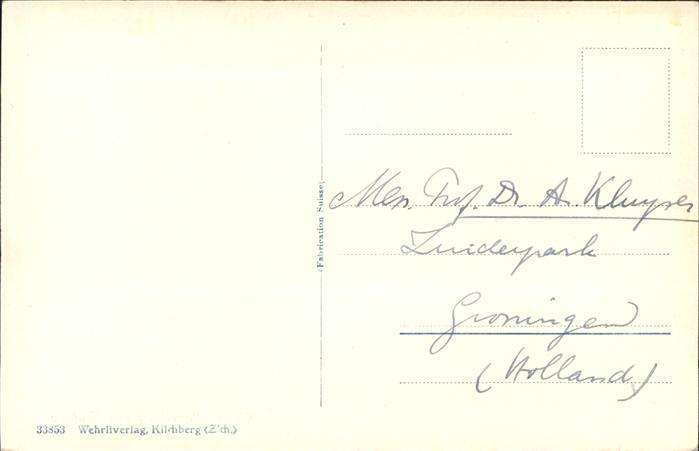 (Fabrication Suisse)
Prof. Dr. A. Kluyver
Zuiderpark
Groningen
(Holland)
33853 Wehrliverlag, Kilchberg (Zch.)